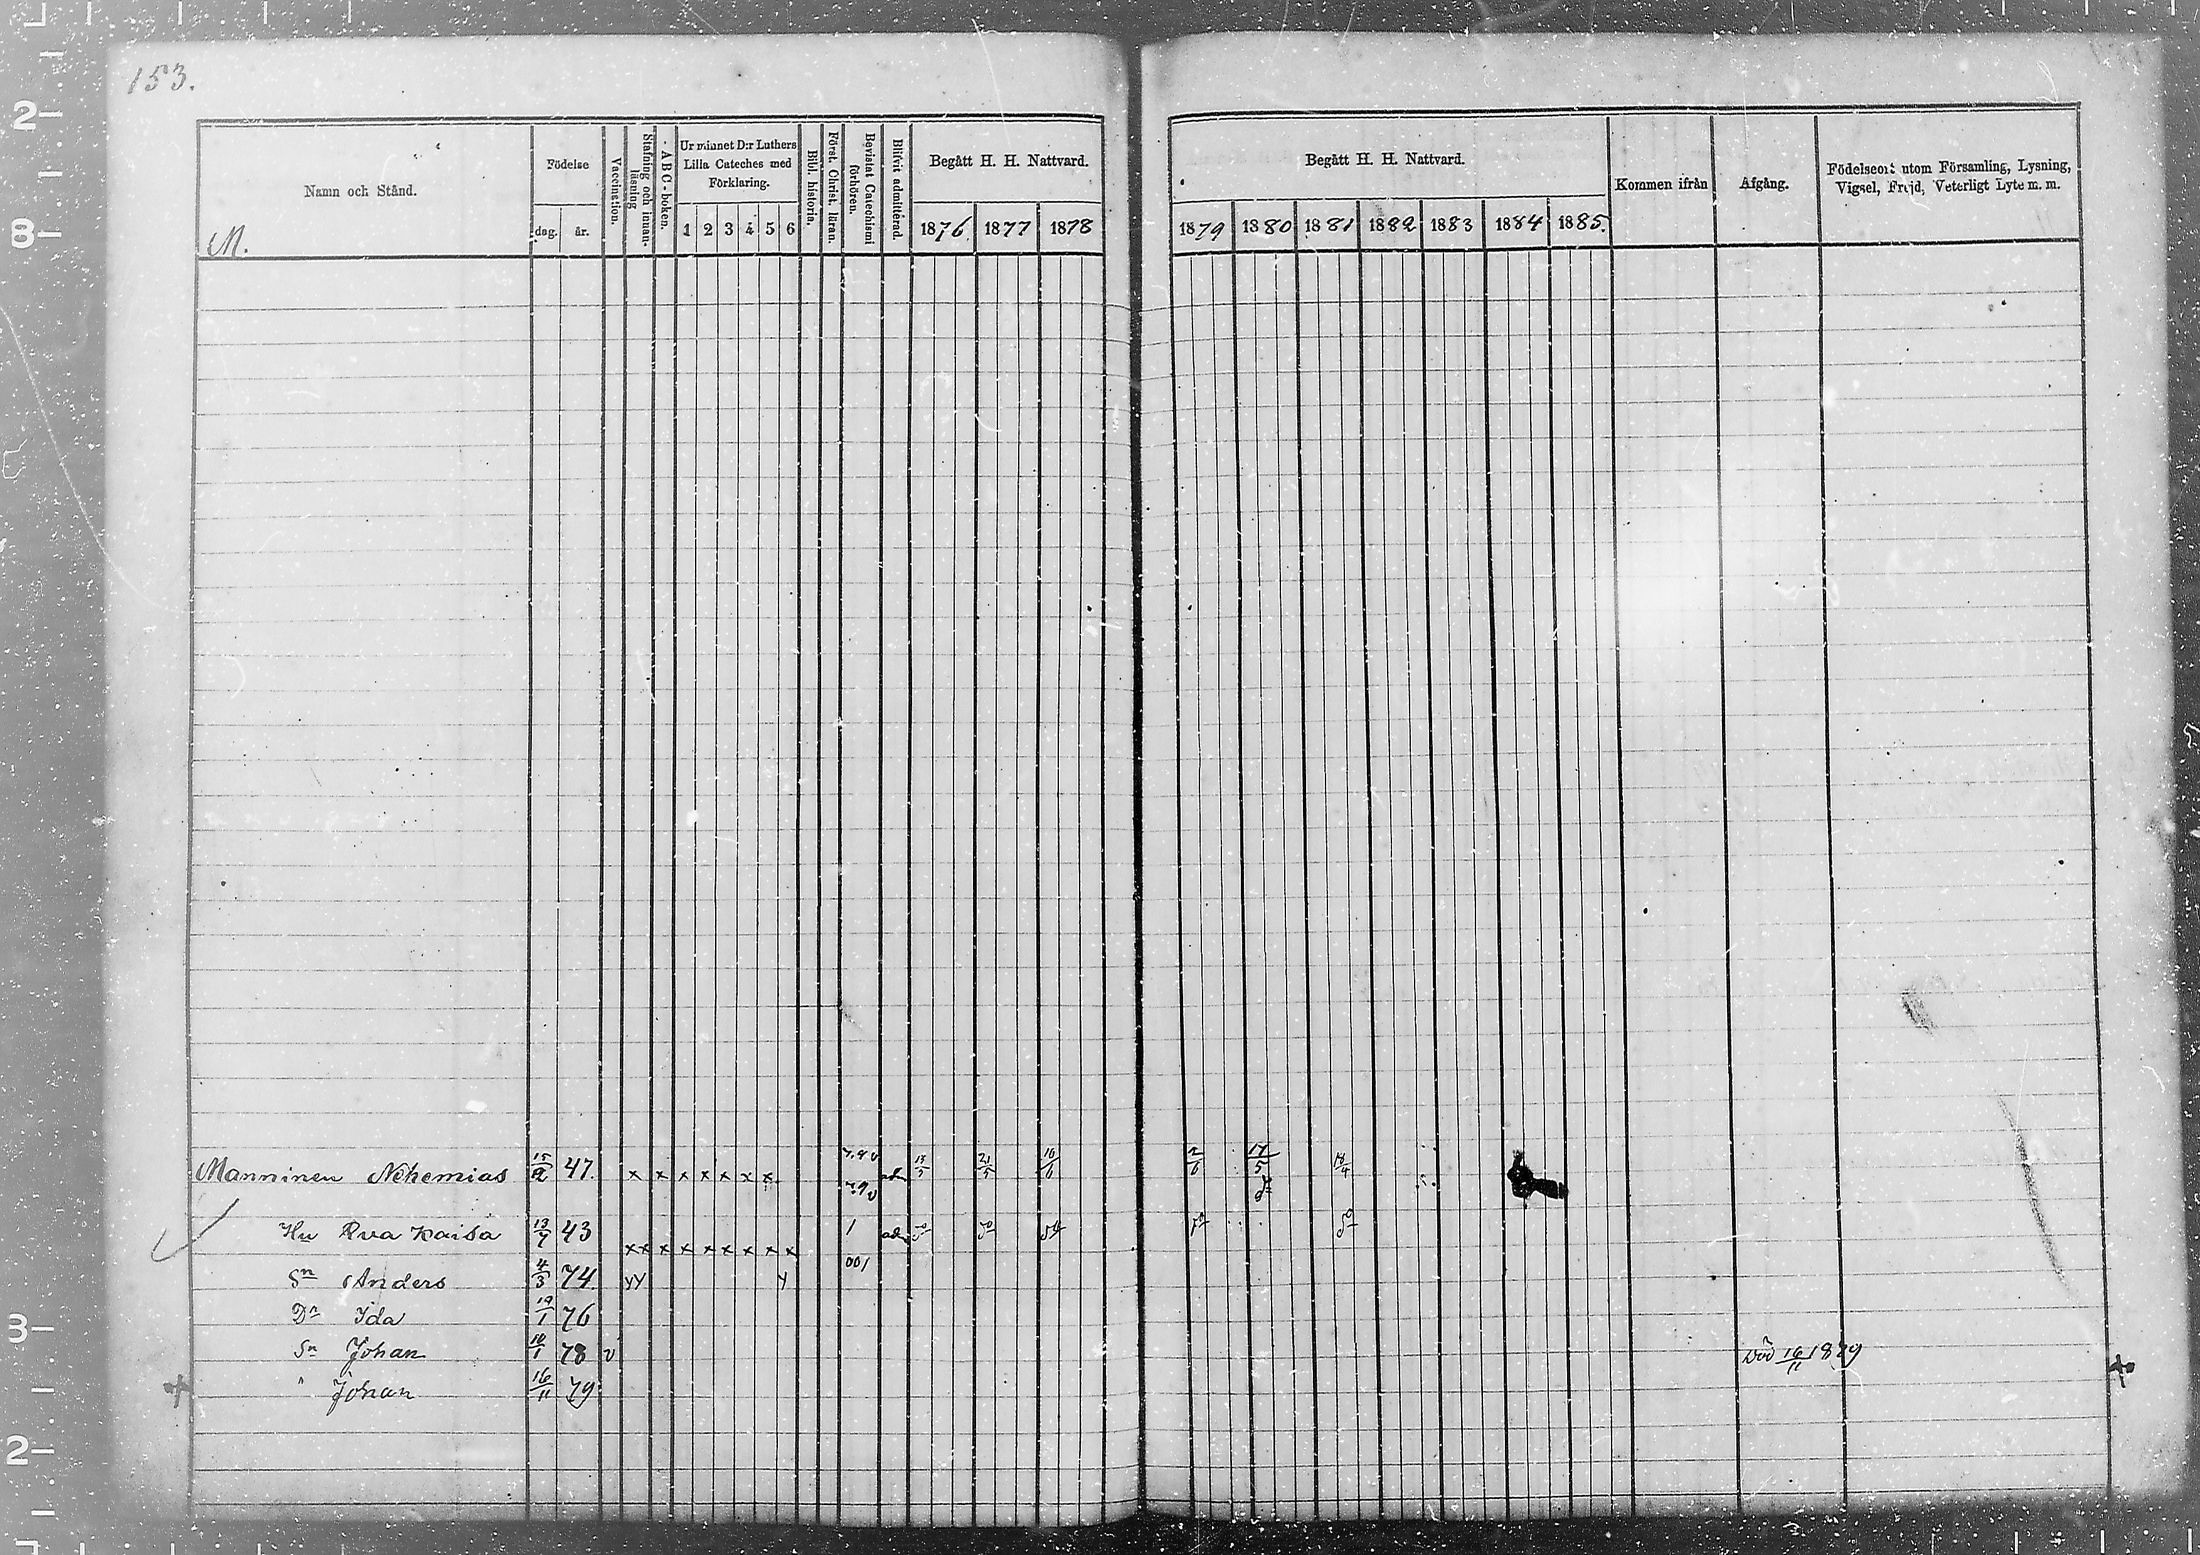 153.
Namn och Stånd.
M.
Födelse
dag. år.
Vaccination.
Stafning och innan-läsning
ABC-boken.
Ur minnet D:r Luthers Lilla Cateches med Förklaring.
1 2 3 4 5 6
Bibl. historia.
Först. Christ. läran.
Bevistat Catechismi förhören.
Blifvit admitterad.
Begått H. H. Nattvard.
1876. 1877 1878
Begått H. H. Nattvard.
1879 1880 1881 1882 1883 1884 1885.
Kommen ifrån
Afgång.
Födelseort utom Församling, Lysning, Vigsel, Frejd, Veterligt Lyte m. m.
Manninen Nehemias 15/2 47. x x x x x x x ad 13/5 21/5 16/6 2/6 17/5 18/4
Hu Eva Kaisa 13/7 43 xx x x x x x x 1 ad
Sn Anders 4/3 74. yy y 001
Dr Ida 19/1 76
Sn Johan 10/1 78 v Död 16/11 1879
" Johan 16/11 79